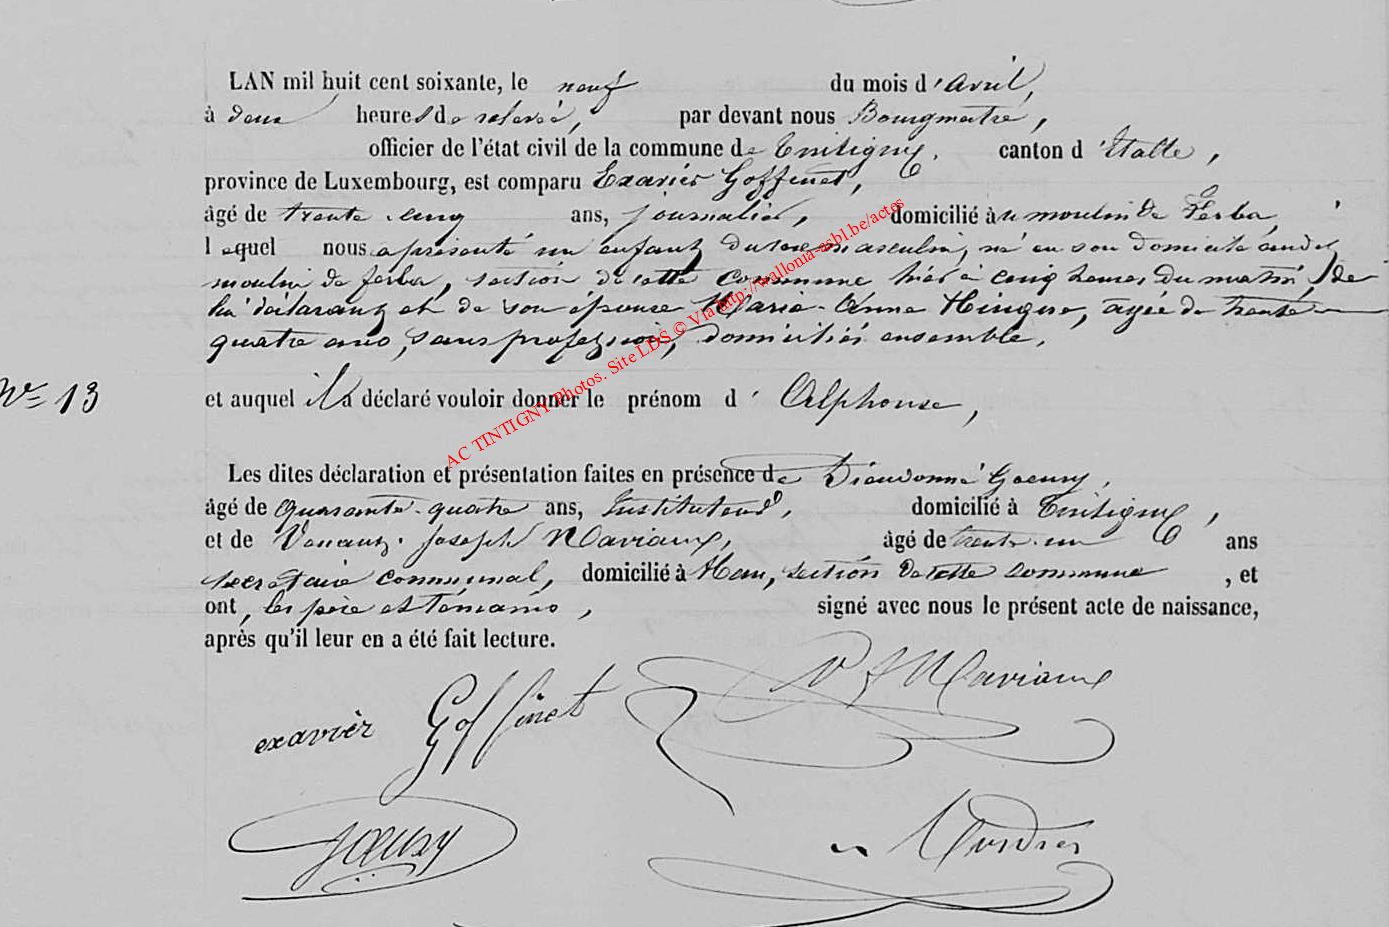 LAN mil huit cent soixante, le neuf du mois d'avril,
à deux heures de relevée, par devant nous Bourgmestre,
officier de l'état civil de la commune de Tintigny, canton d'Etalle,
province de Luxembourg, est comparu Exavier Goffinet,
âgé de trente cinq ans, journalier, domicilié au moulin de Ferba,
lequel nous a présenté un enfant du sexe masculin, né en son domicile audit
moulin de ferba, section de cette commune hier à cinq heures du matin, de
lui déclarant et de son épouse Marie-Anne, agée de trente
quatre ans, sans profession, domiciliés ensemble,
Nº 13
et auquel il a déclaré vouloir donner le prénom d'Alphonse,
Les dites déclaration et présentation faites en présence de Dieudonné Goeury,
âgé de quarante-quatre ans, Instituteur, domicilié à Tintigny,
et de Venant-Joseph Maviaux, âgé de trente-un ans
secrétaire communal, domicilié à Han, section de cette commune, et
ont, les père et témoins, signé avec nous le présent acte de naissance,
après qu'il leur en a été fait lecture.
V J Maviaux
exavièr Goffinet
Goeury
AC TINTIGNY Photos. Site LDS © Via http://wallonia-asbl.be/actes